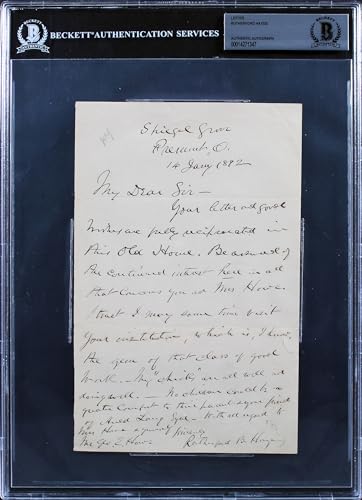 BECKETT AUTHENTICATION SERVICES
LETTER
RUTHERFORD HAYES
AUTHENTIC AUTOGRAPH
00014271347
BECKETT
Spiegel Grove
Fremont, O.
14 Jany 1882
My Dear Sir —
Your letter and good
wishes are fully reciprocated in
this Old Home. Be assured of
the continued interest here in all
that concerns you and Mrs Howe.
I trust I may some time visit
your institution, which is, I know,
the gem of that class of good
work — My "chicks" are all well and
doing well. — No children could be a
greater comfort to their parents
of Auld Lang Syne — With all regard to
Mrs Howe
Sincerely
Rutherford B. Hayes
Mr Geo. L. Howe